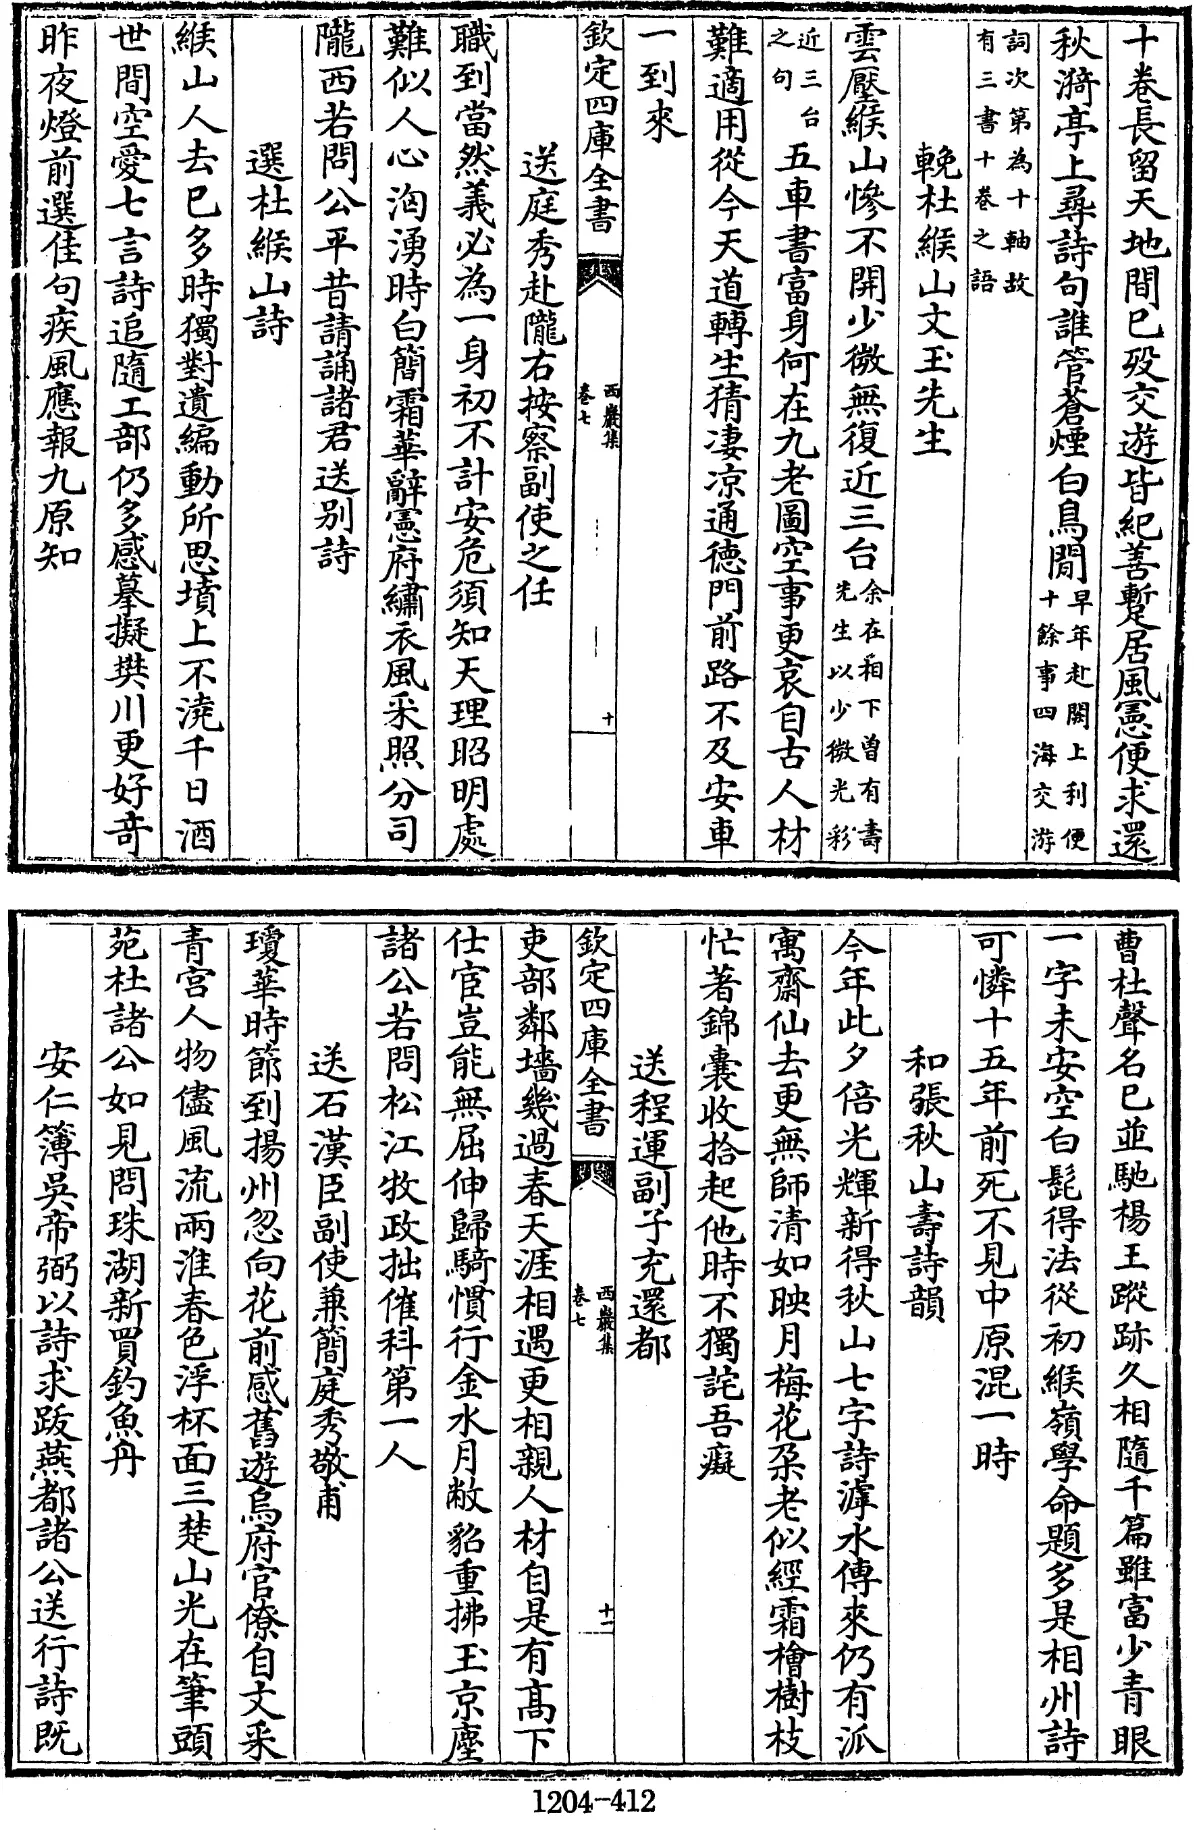 十卷長留天地間已歿交遊皆紀善暫居風憲便求還
秋漪亭上尋詩句誰管蒼煙白鳥閒早年赴闕上利便
十餘事四海交游
詞次第為十軸故
有三書十卷之語
輓杜緱山文玉先生
雲壓緱山慘不開少微無復近三台余在相下曽有壽
先生以少微光彩
近三台
之句
五車書富身何在九老圖空事更哀自古人材
難適用從今天道轉生猜凄涼通德門前路不及安車
一到來
欽定四庫全書
西巖集
卷七
十
送庭秀赴隴右按察副使之任
職到當然義必為一身初不計安危須知天理昭明處
難似人心洶湧時白簡霜華辭憲府繡衣風采照分司
隴西若問公平昔請誦諸君送别詩
選杜緱山詩
緱山人去已多時獨對遺編動所思墳上不澆千日酒
世間空愛七言詩追隨工部仍多感摹擬樊川更好竒
昨夜燈前選佳句疾風應報九原知
曹杜聲名已並馳楊王蹤跡久相隨千篇雖富少青眼
一字未安空白髭得法從初緱嶺學命題多是相州詩
可憐十五年前死不見中原混一時
和張秋山壽詩韻
今年此夕倍光輝新得秋山七字詩滹水傳來仍有派
寓齋仙去更無師清如映月梅花朶老似經霜檜樹枝
忙著錦囊收拾起他時不獨詫吾癡
送程運副子充還都
欽定四庫全書
西巖集
卷七
十一
吏部鄰墻幾過春天涯相遇更相親人材自是有高下
仕宦豈能無屈伸歸騎慣行金水月敝貂重拂玉京塵
諸公若問松江牧政拙催科第一人
送石漢臣副使兼簡庭秀敬甫
瓊華時節到揚州忽向花前感舊遊烏府官僚自文采
青宮人物儘風流兩淮春色浮杯面三楚山光在筆頭
苑杜諸公如見問珠湖新買釣魚舟
安仁簿吳帝弼以詩求跋燕都諸公送行詩既
1204-412